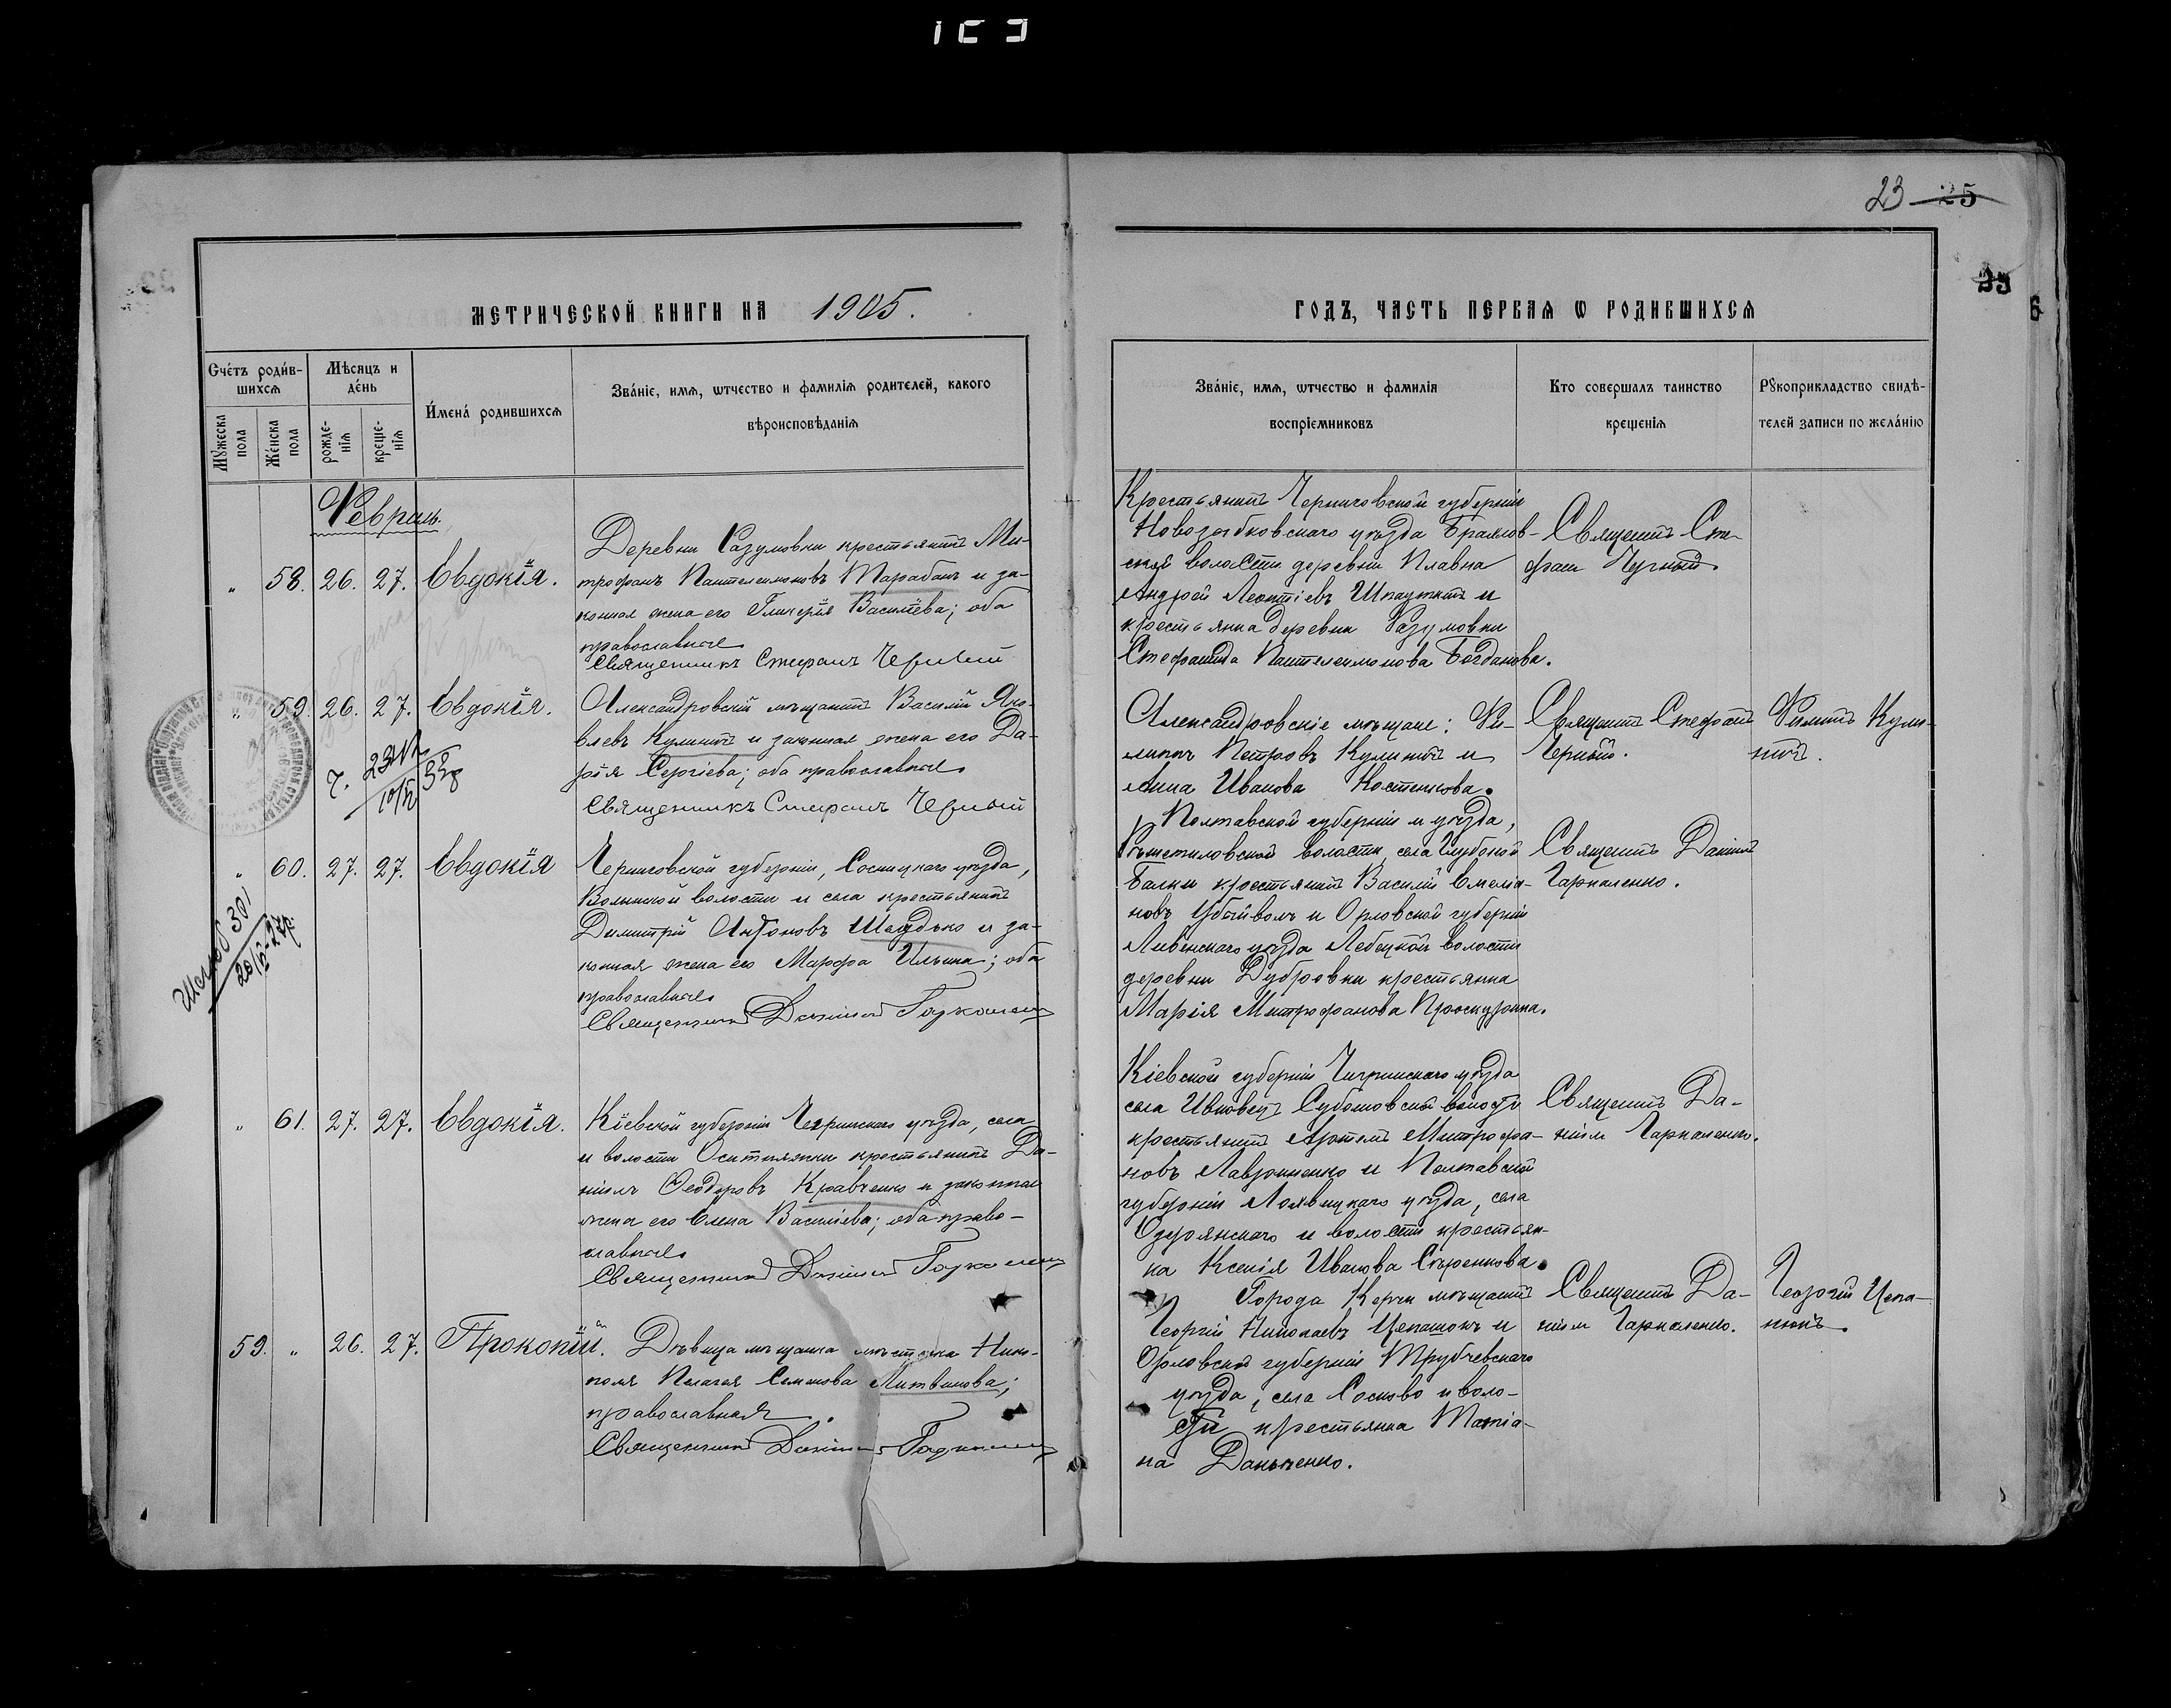 23 25
МЕТРИЧЕСКОЙ КНИГИ НА 1905.
ГОДЪ, ЧАСТЬ ПЕРВАЯ Ѡ РОДИВШИХСѦ
Счéтъ роди́вшихсѧ
Мѣсяцъ и дéнь
И́менá родившихсѧ
Звáніе, имѧ, ѡтчество и фамиліѧ родителей, какого
вѣроисповѣданіѧ
Мꙋжеска пола
Жéнска пола
рожденіѧ
крещеніѧ
Звáніе, имѧ, ѡтчество и фамиліѧ
воспріемниковъ
Кто совершалъ таинство
крещеніѧ
Рꙋкоприкладство свидѣ-
телей записи по желáнію
Февраль.
" 58. 26. 27. Евдокія.
Деревни Разумовки крестьянинъ Ми-
трофанъ Пантелеимоновъ Тарабанъ и за-
конная жена его Гликерія Васильева; оба
православные
Священникъ Стефанъ Черный
Крестьянинъ Черниговской губерніи
Новозыбковскаго уѣзда Брахлов-
ской волости деревни Плавна
Андрей Леонтіевъ и
крестьянка деревни Разумовки
Стефанида Пантелеимонова Богданова.
Священникъ Сте-
фанъ Черный.
" 59. 26. 27. Евдокія.
Александровскій мѣщанинъ Василій Яко-
влевъ Кулинич и законная жена его Да-
рія Сергіева; оба православные
Священникъ Стефанъ Черный
Александровскіе мѣщане: Фи-
липпъ Петровъ Кулинич и
Анна Иванова Костенкова.
Священникъ Стефанъ
Черный.
Филиппъ Кули-
нич.
" 60. 27. 27. Евдокія
Черниговской губерніи, Сосницкаго уѣзда,
Волынской волости и села крестьянинъ
Димитрій Антоновъ Шедько и за-
конная жена его Марфа Ильина; оба
православные
Священникъ Даніилъ Гаркаленко
Полтавской губерніи и уѣзда,
волости, села Глубокой
Балки крестьянинъ Василій Емелiа-
новъ Убыйволъ и Орловской губерніи
Ливенскаго уѣзда волости
деревни Дубровки крестьянка
Марія Митрофанова Проскурина.
Священникъ Даніилъ
Гаркаленко.
" 61. 27. 27. Евдокія.
Кіевской губерніи уѣзда, села
и волости Оситняжки крестьянинъ Да-
ніилъ Ѳеодоровъ Кравченко и законная
жена его Елена Васильева; оба право-
славные
Священникъ Даніилъ Гаркаленко
Кіевской губерніи Чигринскаго уѣзда
села Ивковецъ Субботовской волости
крестьянинъ Артемъ Митрофа-
новъ Лавриненко и Полтавской
губерніи Лохвицкаго уѣзда, села
и волости крестьян-
ка Ксенія Иванова
Священникъ Да-
ніилъ Гаркаленко.
59. " 26. 27. Прокопій.
Дѣвица мѣщанка мѣстечка Нико-
поля Пелагея Семенова Литвинова;
православная.
Священникъ Даніилъ Гаркаленко
Города Керчи мѣщанинъ
Георгій Николаевъ и
Орловской губерніи Трубчевскаго
уѣзда, села и воло-
сти крестьянка Татіа-
на Данченко.
Священникъ Да-
ніилъ Гаркаленко.
Георгій